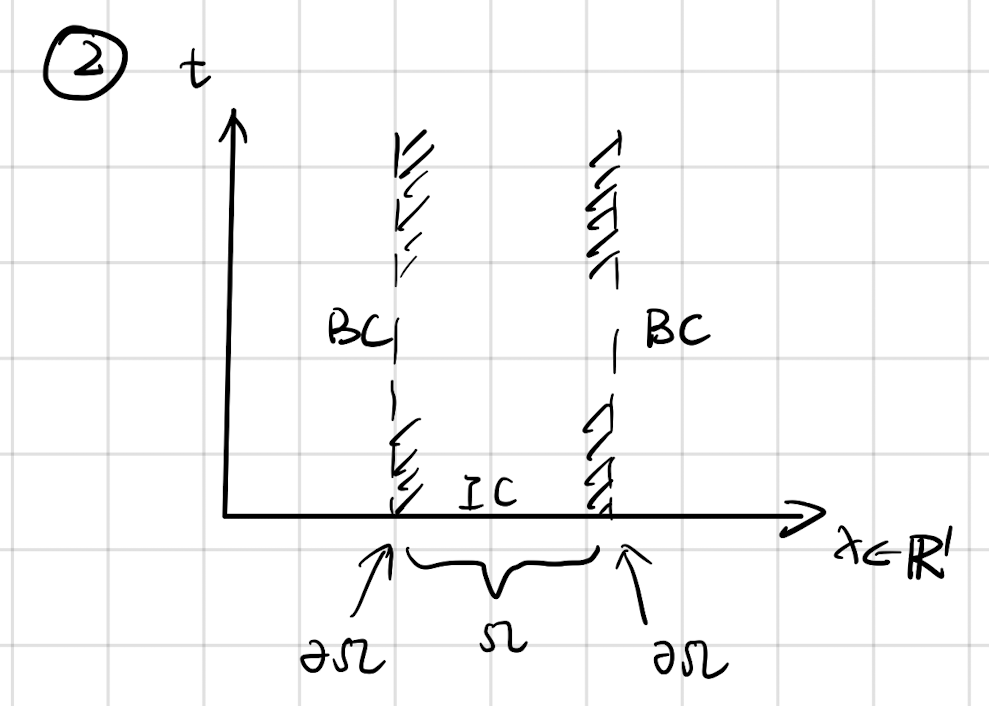 ② t
BC BC
IC
x∈ℝ¹
∂Ω Ω ∂Ω